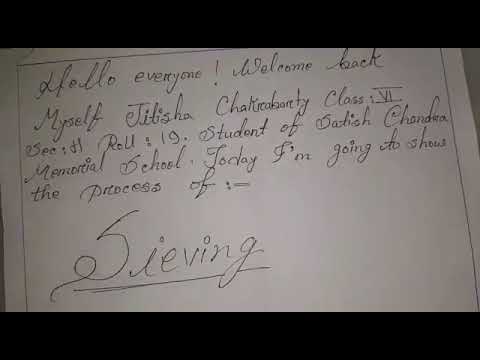 Hello everyone! Welcome back
Myself Titisha Chakraborty Class: VI
Sec: H Roll: 19. Student of Satish Chandra
Memorial School. Today I'm going to show
the process of :-
Sieving